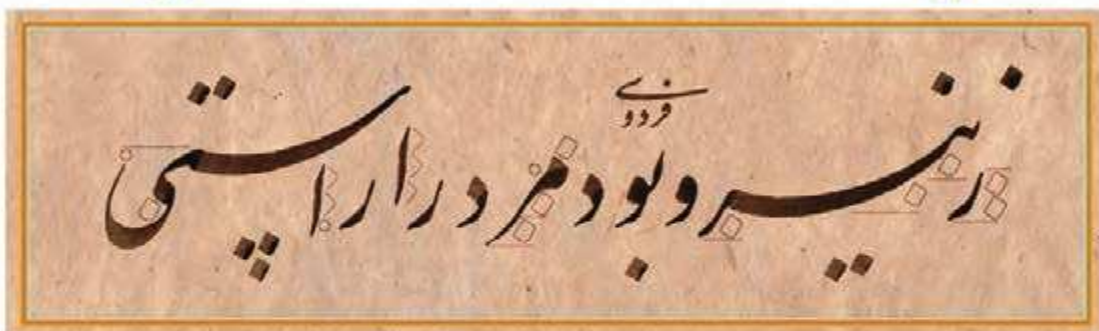 فردوسی
ز نیرو بود مرد را راستی